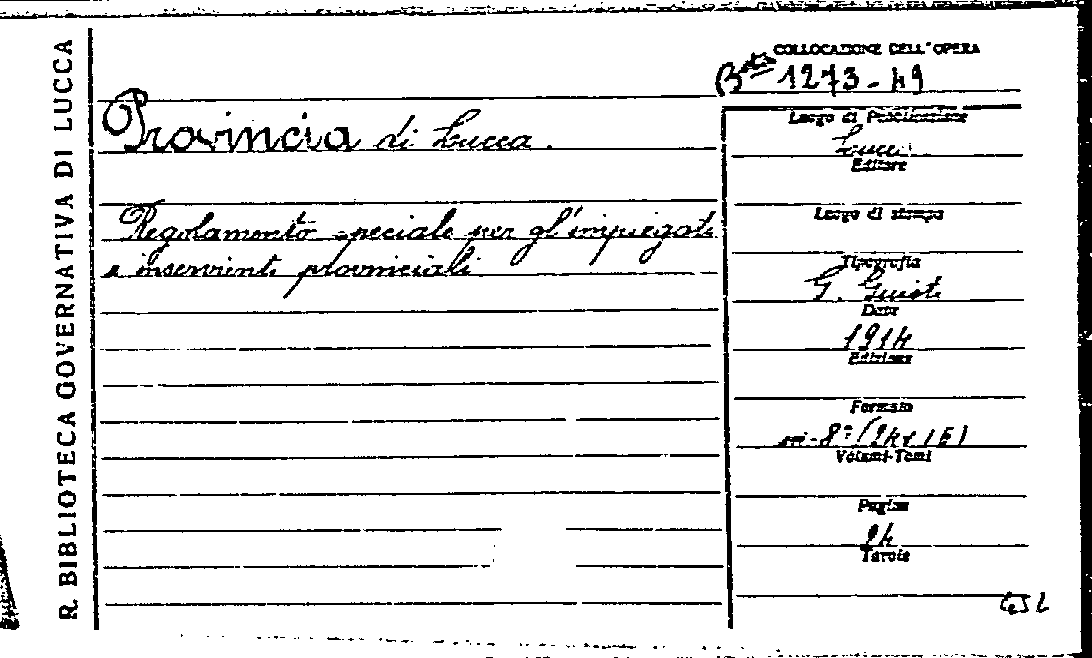 R. BIBLIOTECA GOVERNATIVA DI LUCCA
COLLOCAZIONE DELL'OPERA
Bta 1273-49
Provincia di Lucca.
Regolamento speciale per gl'impiegati
e inservienti provinciali
Luogo di Pubblicazione
Lucca
Editore
Luogo di stampa
Tipografia
G. Giusti
Data
1914
Edizione
Formato
in-8°
Volumi-Tomi
Pagine
24
Tavole